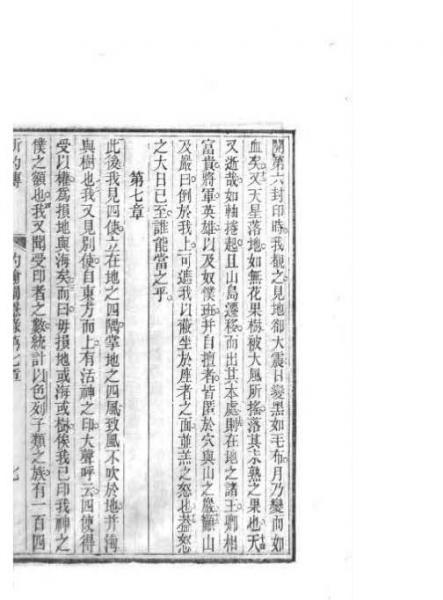 開第六封印時我觀之見地卻大震日變黑如毛布月乃變而如
血矣又天星落地如無花果樹被大風所搖落其未熟之果也天
又逝哉如軸捲起且山島遷移而出其本處則在地之諸王卿相
富貴將軍英雄以及奴僕班并自擅者皆匿於穴與山之巖嚴山
及巖曰倒於我上可遮我以蔽坐於座者之面並羔之怒也蓋怒
之大日已至誰能當之乎
第七章
此後我見四使立在地之四隅掌地之四風致風不吹於地并海
與樹也我又見別使自東方而上有活神之印大聲呼云四使得
受以權為損地與海矣而曰毋損地或海或樹俟我已印我神之
僕之額也我又聞受印者之數統計以色列子類之族有一百四